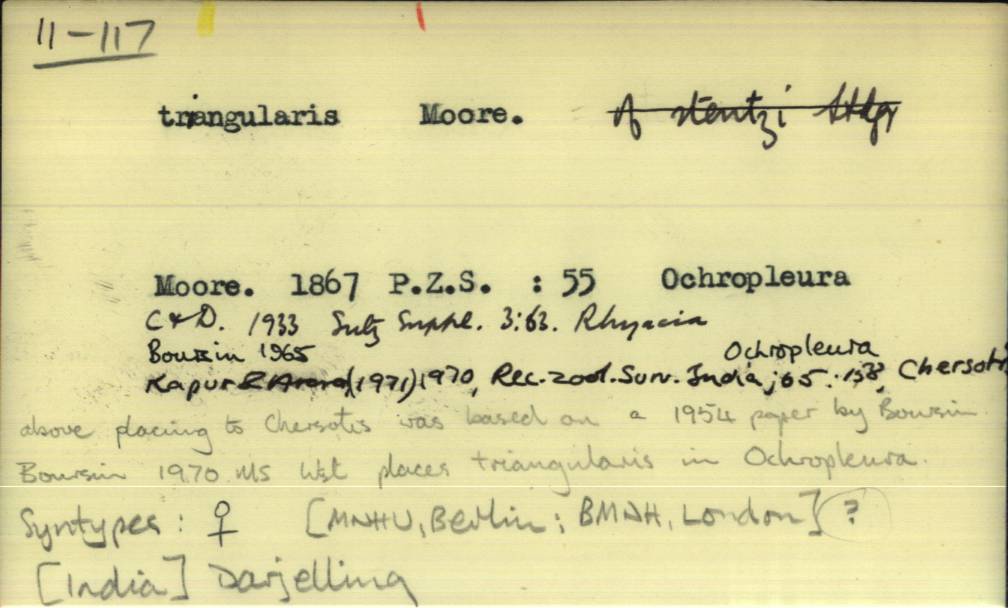 11-117
triangularis Moore. A stentzi Stdgr
Moore. 1867 P.Z.S. : 55 Ochropleura
C & D. 1933 Seitz Suppl. 3:63. Rhyacia
Boursin 1965 Ochropleura
Kapur & Arora (1971) 1970, Rec. zool. Surv. India; 65: 138, Chersoti
above placing to Chersotis was based on a 1954 paper by Boursin
Boursin 1970 MS list places triangularis in Ochropleura.
Syntypes: ♀ [MNHU, Berlin; BMNH, London] ?
[India] Darjelling